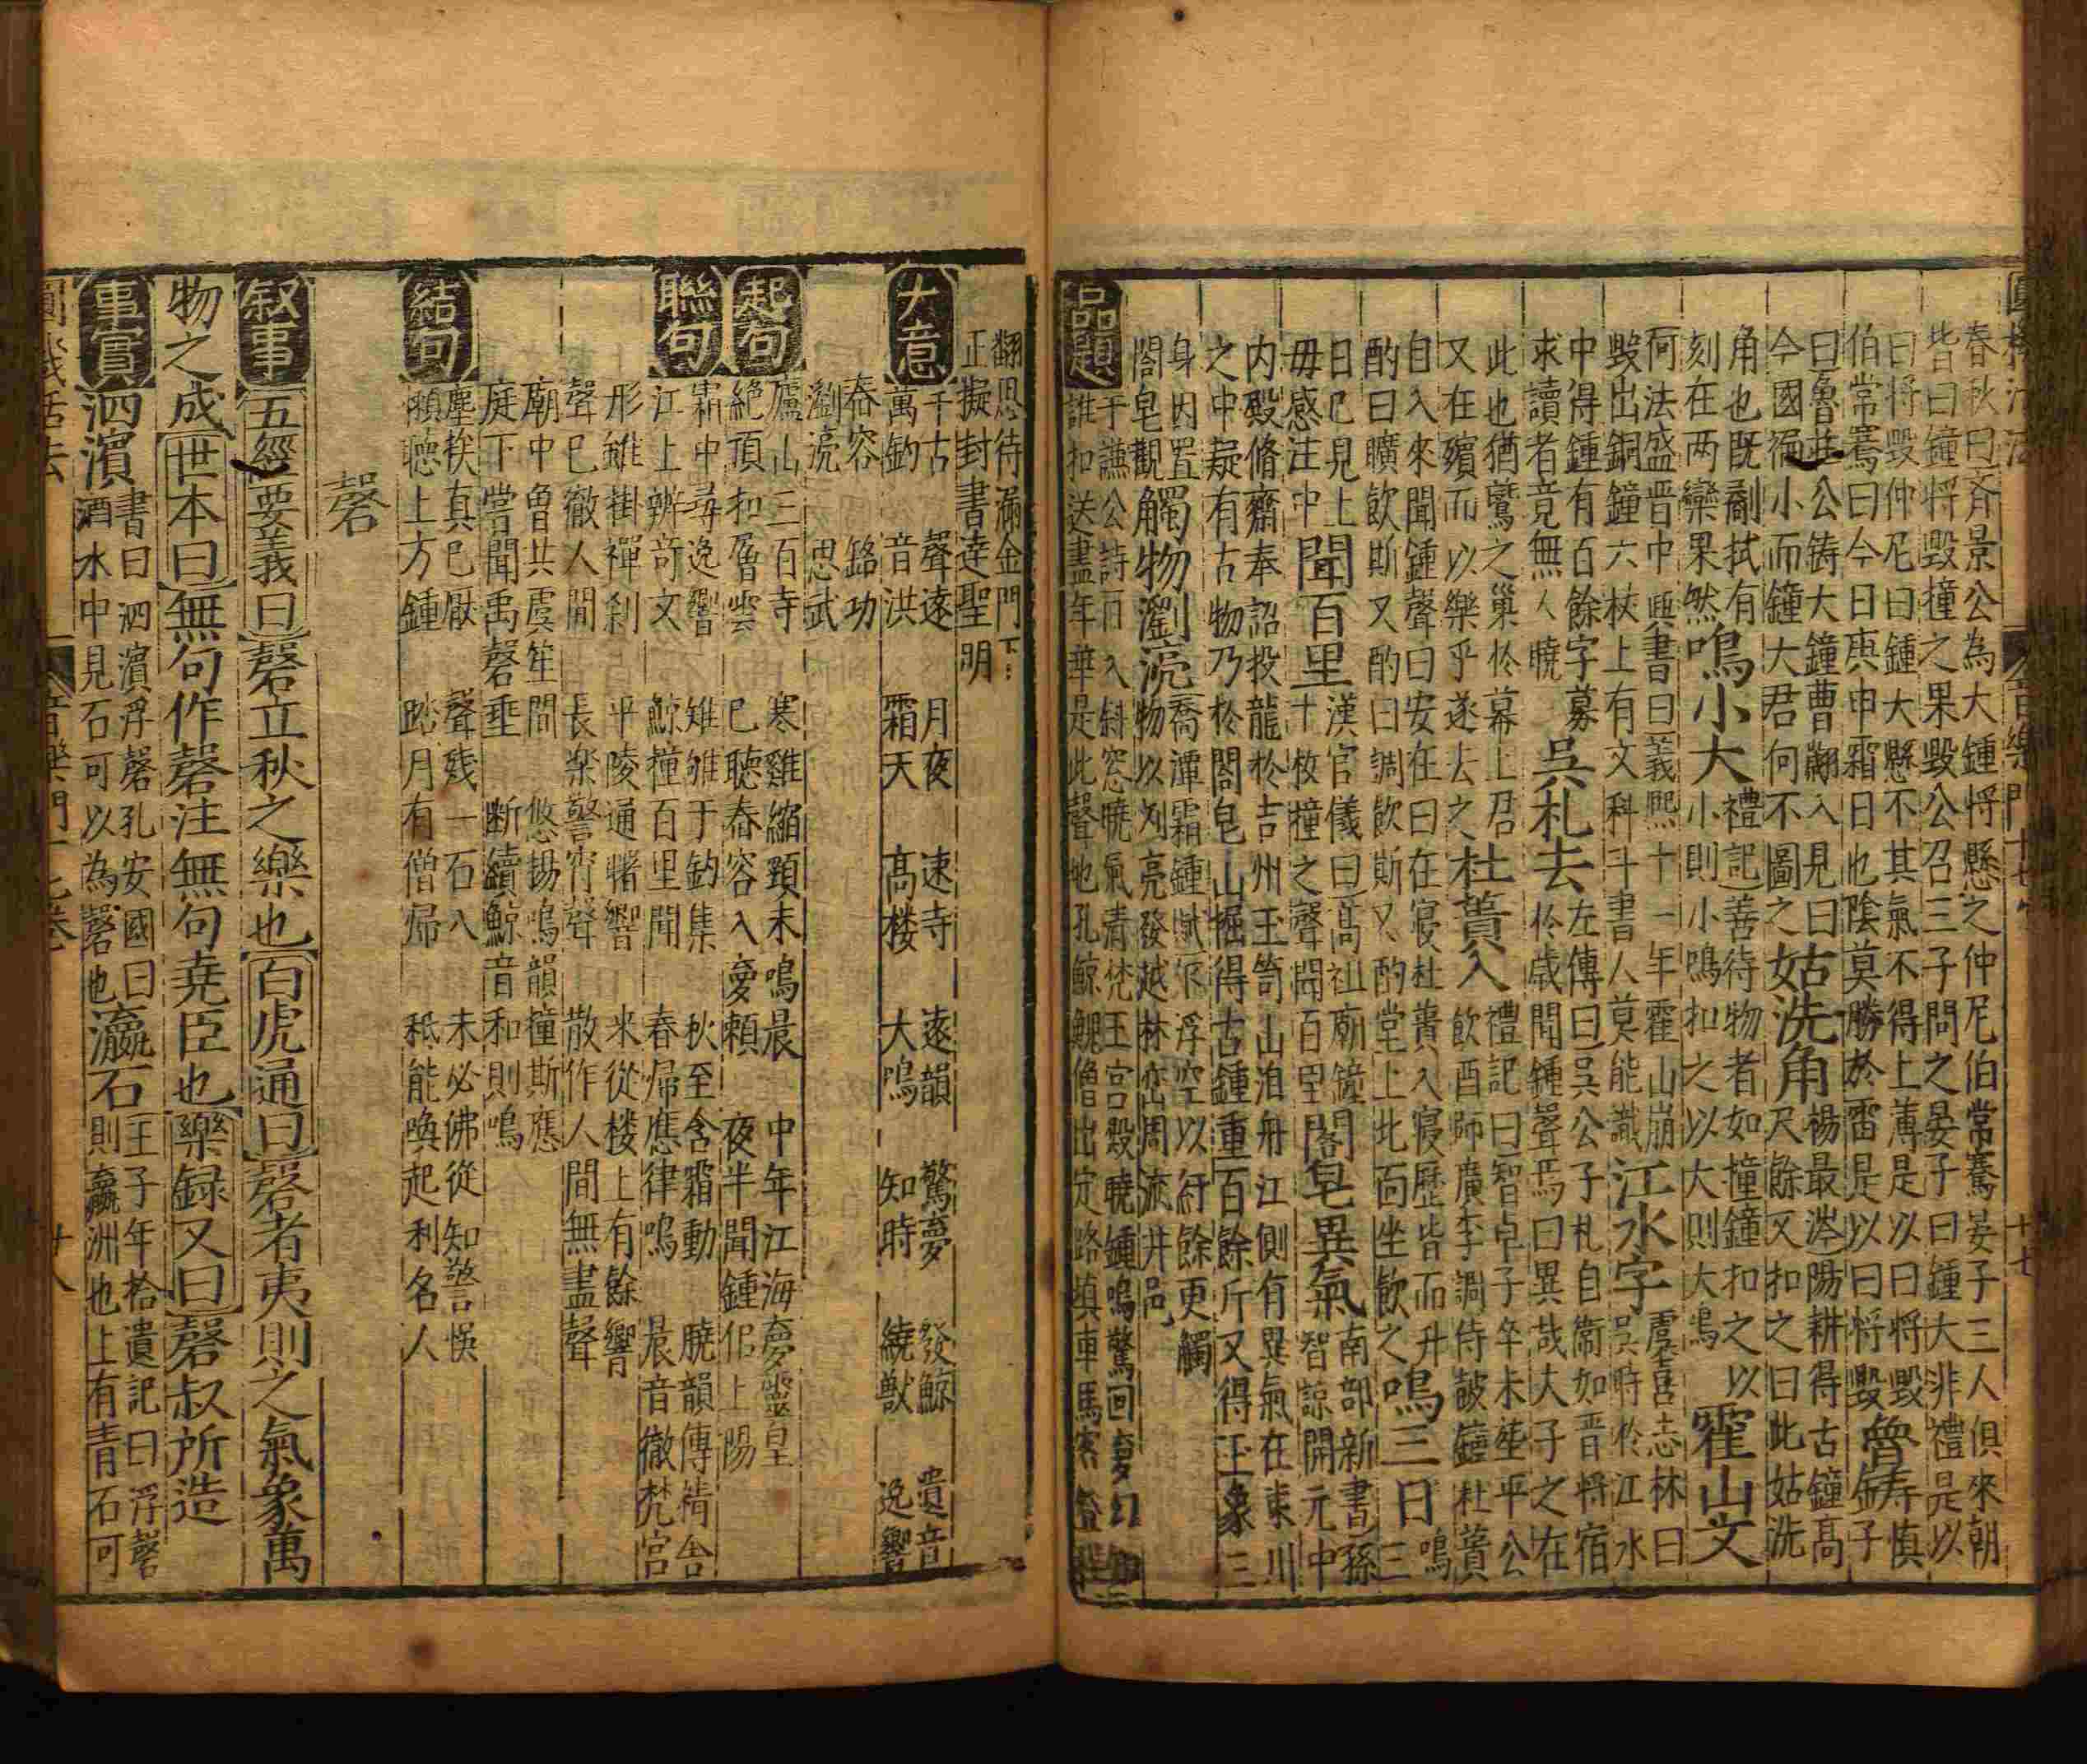 春秋曰齊景公為大鍾将懸之仲尼伯常騫晏子三人俱來朝
皆曰鐘将毀撞之果毀公召三子問之晏子曰鍾大非禮是以
曰将毀仲尼曰鍾大懸不其氣不得上薄是以曰将毀
伯常騫曰今日庚申霜日也陰莫勝於雷是以曰将毀
魯鋳
慎子
曰魯荘公鋳大鐘曹翽入見曰
今國褊小而鐘大君何不圖之
姑洗角
楊最澇陽耕得古鐘髙
尺餘叉扣之曰此姑洗
角也既劀拭有
刻在两欒果然
鳴小大
禮記善待物者如撞鐘扣之以
小則小鳴扣之以大則大鳴
霍山文
何法盛晋中興書曰義熈十一年霍山崩
毀出銅鐘六枝上有文科斗書人莫能識
江水字
虞喜志林曰
吳時於江水
中得鍾有百餘字募
求讀者竟無人曉
吳札去
左傳曰吳公子札自衛如晋将宿
於戚聞鍾聲焉曰異哉夫子之在
此也猶鷰之巢於幕上君
又在殯而以樂乎遂去之
杜蕢入
禮記曰智卓子卒未塟平公
飲酉師廣李調侍皷鐘杜蕢
自入來聞鍾聲曰安在曰在寝杜蕢入寝歴皆而升
酌曰曠飲斯又酌曰調飲斯又酌堂上北面坐飲之
鳴三日
鳴三
日巳見上
毋感注中
聞百里
漢官儀曰髙祖廟鐘
十枚撞之聲聞百里
閤皂異氣
南部新書孫
智諒開元中
内殿脩齋奉詔投龍於吉州玉笥山洎舟江側有異氣在東川
之中疑有古物乃於閤皂山堀得古鍾重百餘斤又得玉象三
身因置
閤皂觀
觸物瀏浣
喬潭霜鍾賦夜浮空以紆餘更觸
物以刘亮發越林巒周流井邑
品題
于讌公詩百入斜窓曉氣清梵王宫殿曉鍾鳴驚回夢幻
誰扣送盡年華是此聲地孔鯨鯢僧出定路填車馬客登
翻思待漏金門下
正擬封書達聖明
大意
千古 聲遠 月夜 速寺 遠韻 驚夢 發鯨 遺音
萬鈞 音洪 霜天 髙楼 大鳴 知時 繞獣 逸響
舂容 銘功
瀏浣 思武
起句
廬山三百寺 寒雞縮頸未鳴晨 中年江海夢靈皇
絶頂扣層雲 巳聽舂容入夢頼 夜半聞鍾侶上陽
聯句
霜中尋逸響 雉雊于鈞集 秋至含霜動 曉韻傳精舎
江上辨竒文 鯨撞百里聞 春帰應律鳴 晨音徹梵宮
形雖掛禪刹 平陵通曙響 來從楼上有餘響
聲巳徹人間 長楽警宵聲 散作人間無盡聲
廟中魯共虡笙間 悠揚鳴韻撞斯應
庭下嘗聞禹磬垂 断續鯨音和則鳴
結句
塵埃真巳厭 聲殘一石入 未必佛從知警悞
頼聽上方鍾 踏月有僧帰 秪能喚起利名人
磬
叙事
五經要義曰磬立秋之樂也百虎通曰磬者夷則之氣象萬
物之成世本曰無句作磬注無句堯臣也樂録又曰磬叔所造
事實
泗濱
書曰泗濱浮磬孔安國曰
酒水中見石可以為磬也
瀛石
王子年拾遺記曰浮磬
則瀛洲也上有青石可